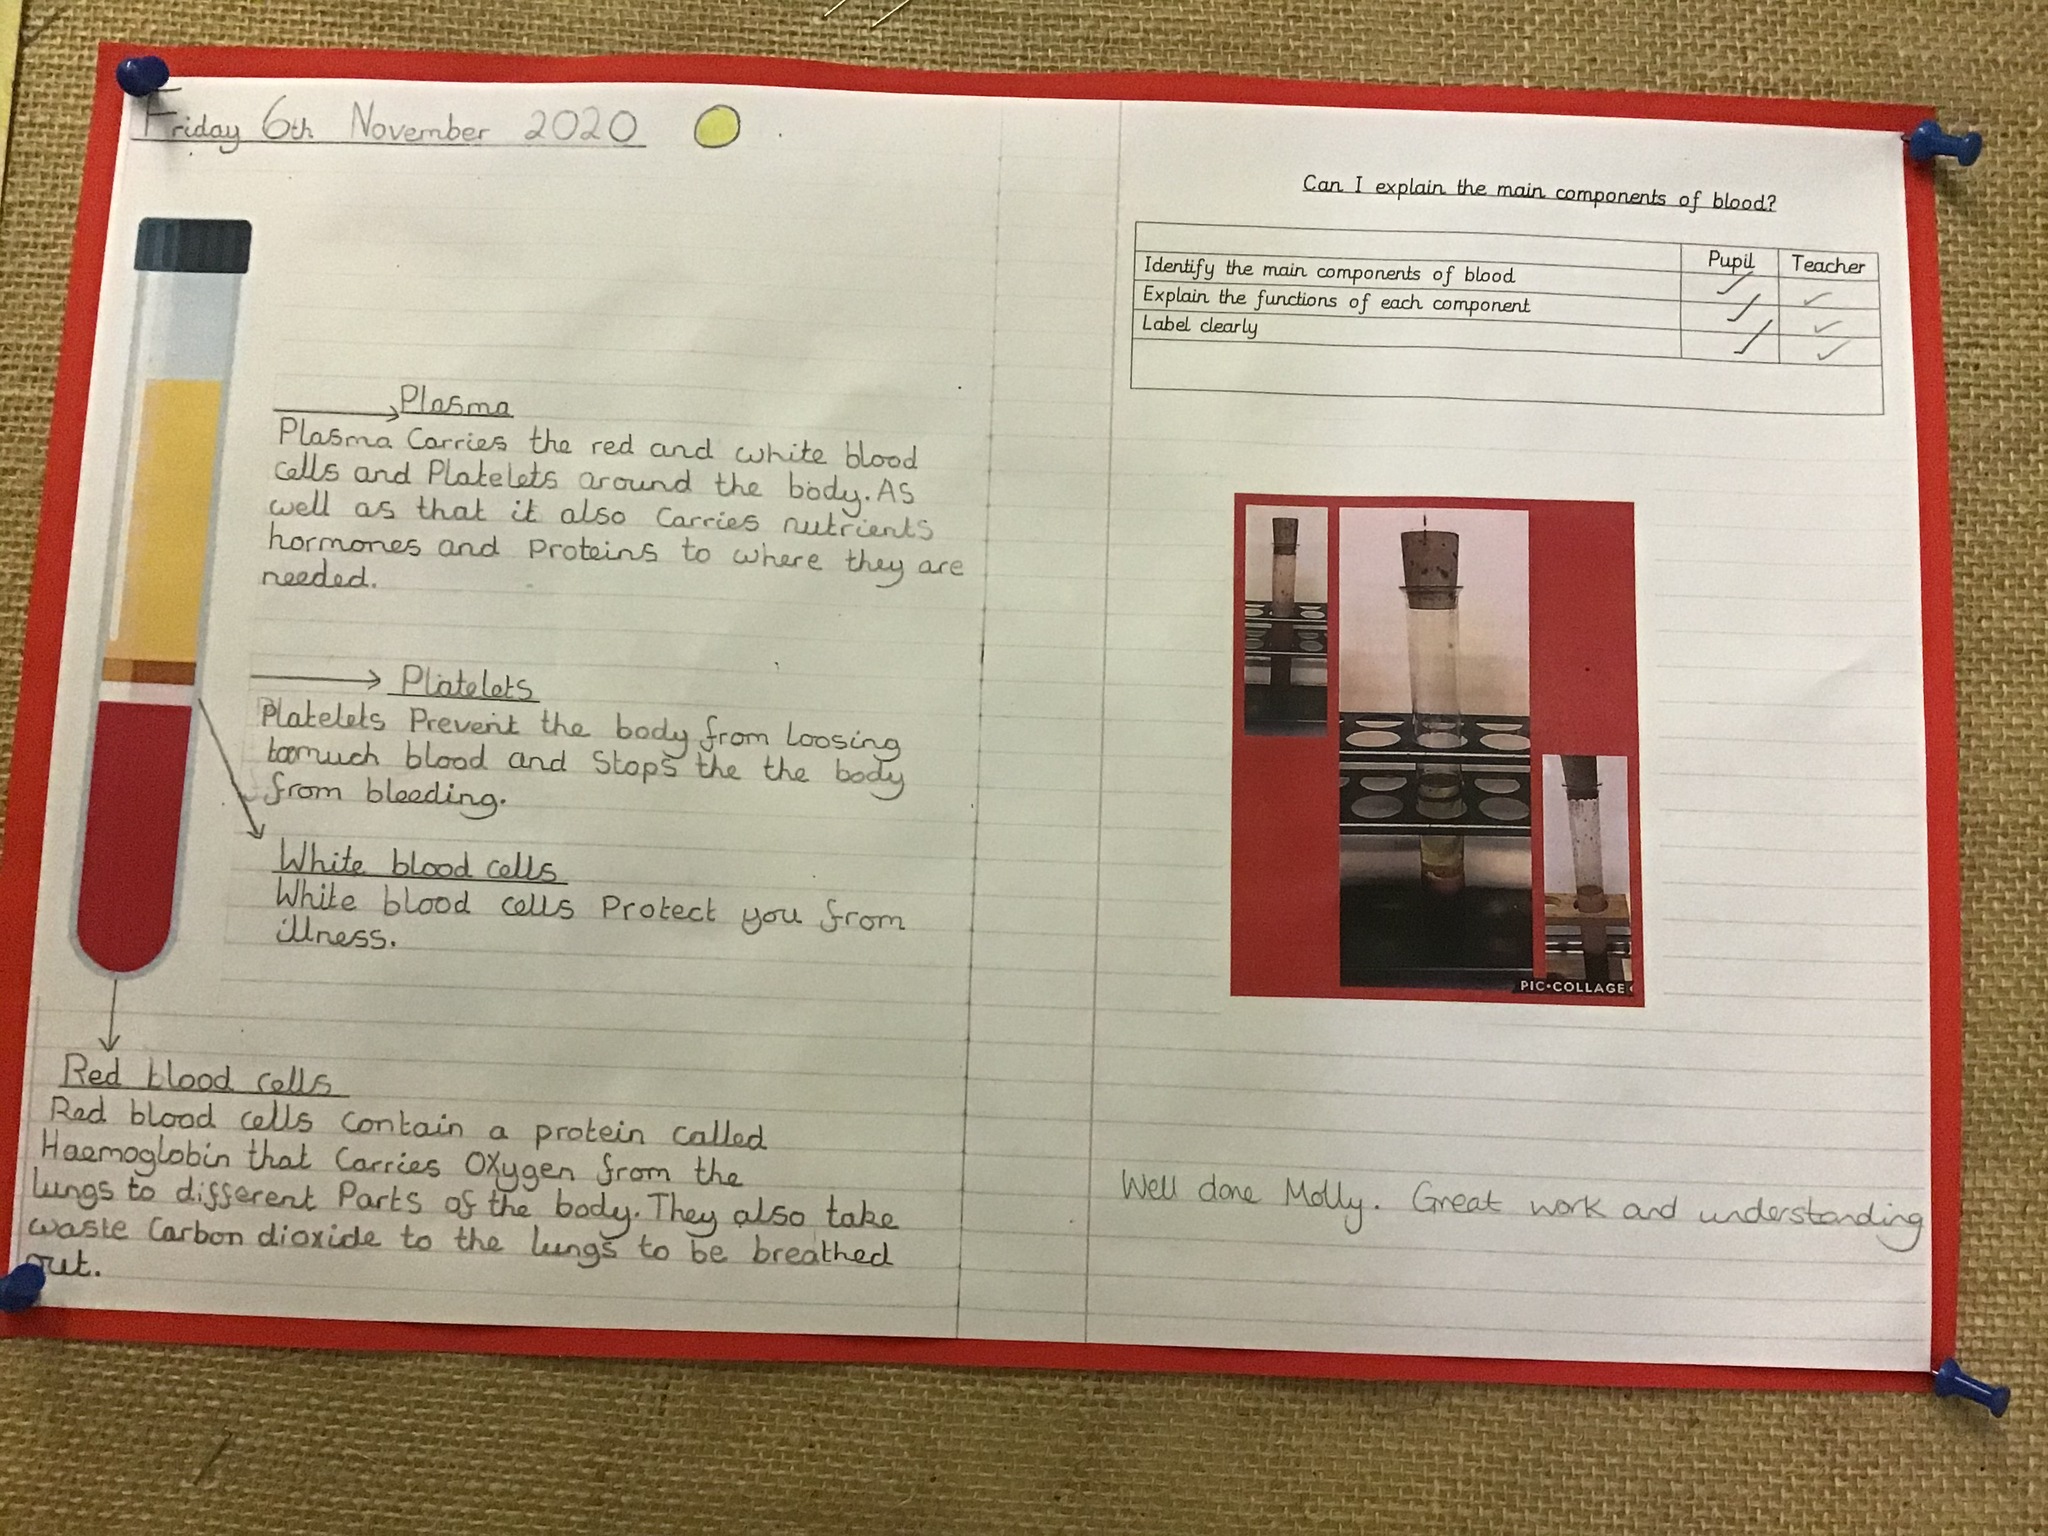 Friday 6th November 2020
Plasma
Plasma Carries the red and white blood
cells and Platelets around the body. As
well as that it also carries nutrients
hormones and proteins to where they are
needed.
Platelets
Platelets Prevent the body from loosing
toomuch blood and Stops the the body
from bleeding.
White blood cells
White blood cells Protect you from
illness.
Red blood cells
Red blood cells contain a protein called
Haemoglobin that Carries Oxygen from the
lungs to different Parts of the body. They also take
waste Carbon dioxide to the lungs to be breathed
out.
Can I explain the main components of blood?
Pupil Teacher
Identify the main components of blood
Explain the functions of each component
Label clearly
PIC•COLLAGE
Well done Molly. Great work and understanding